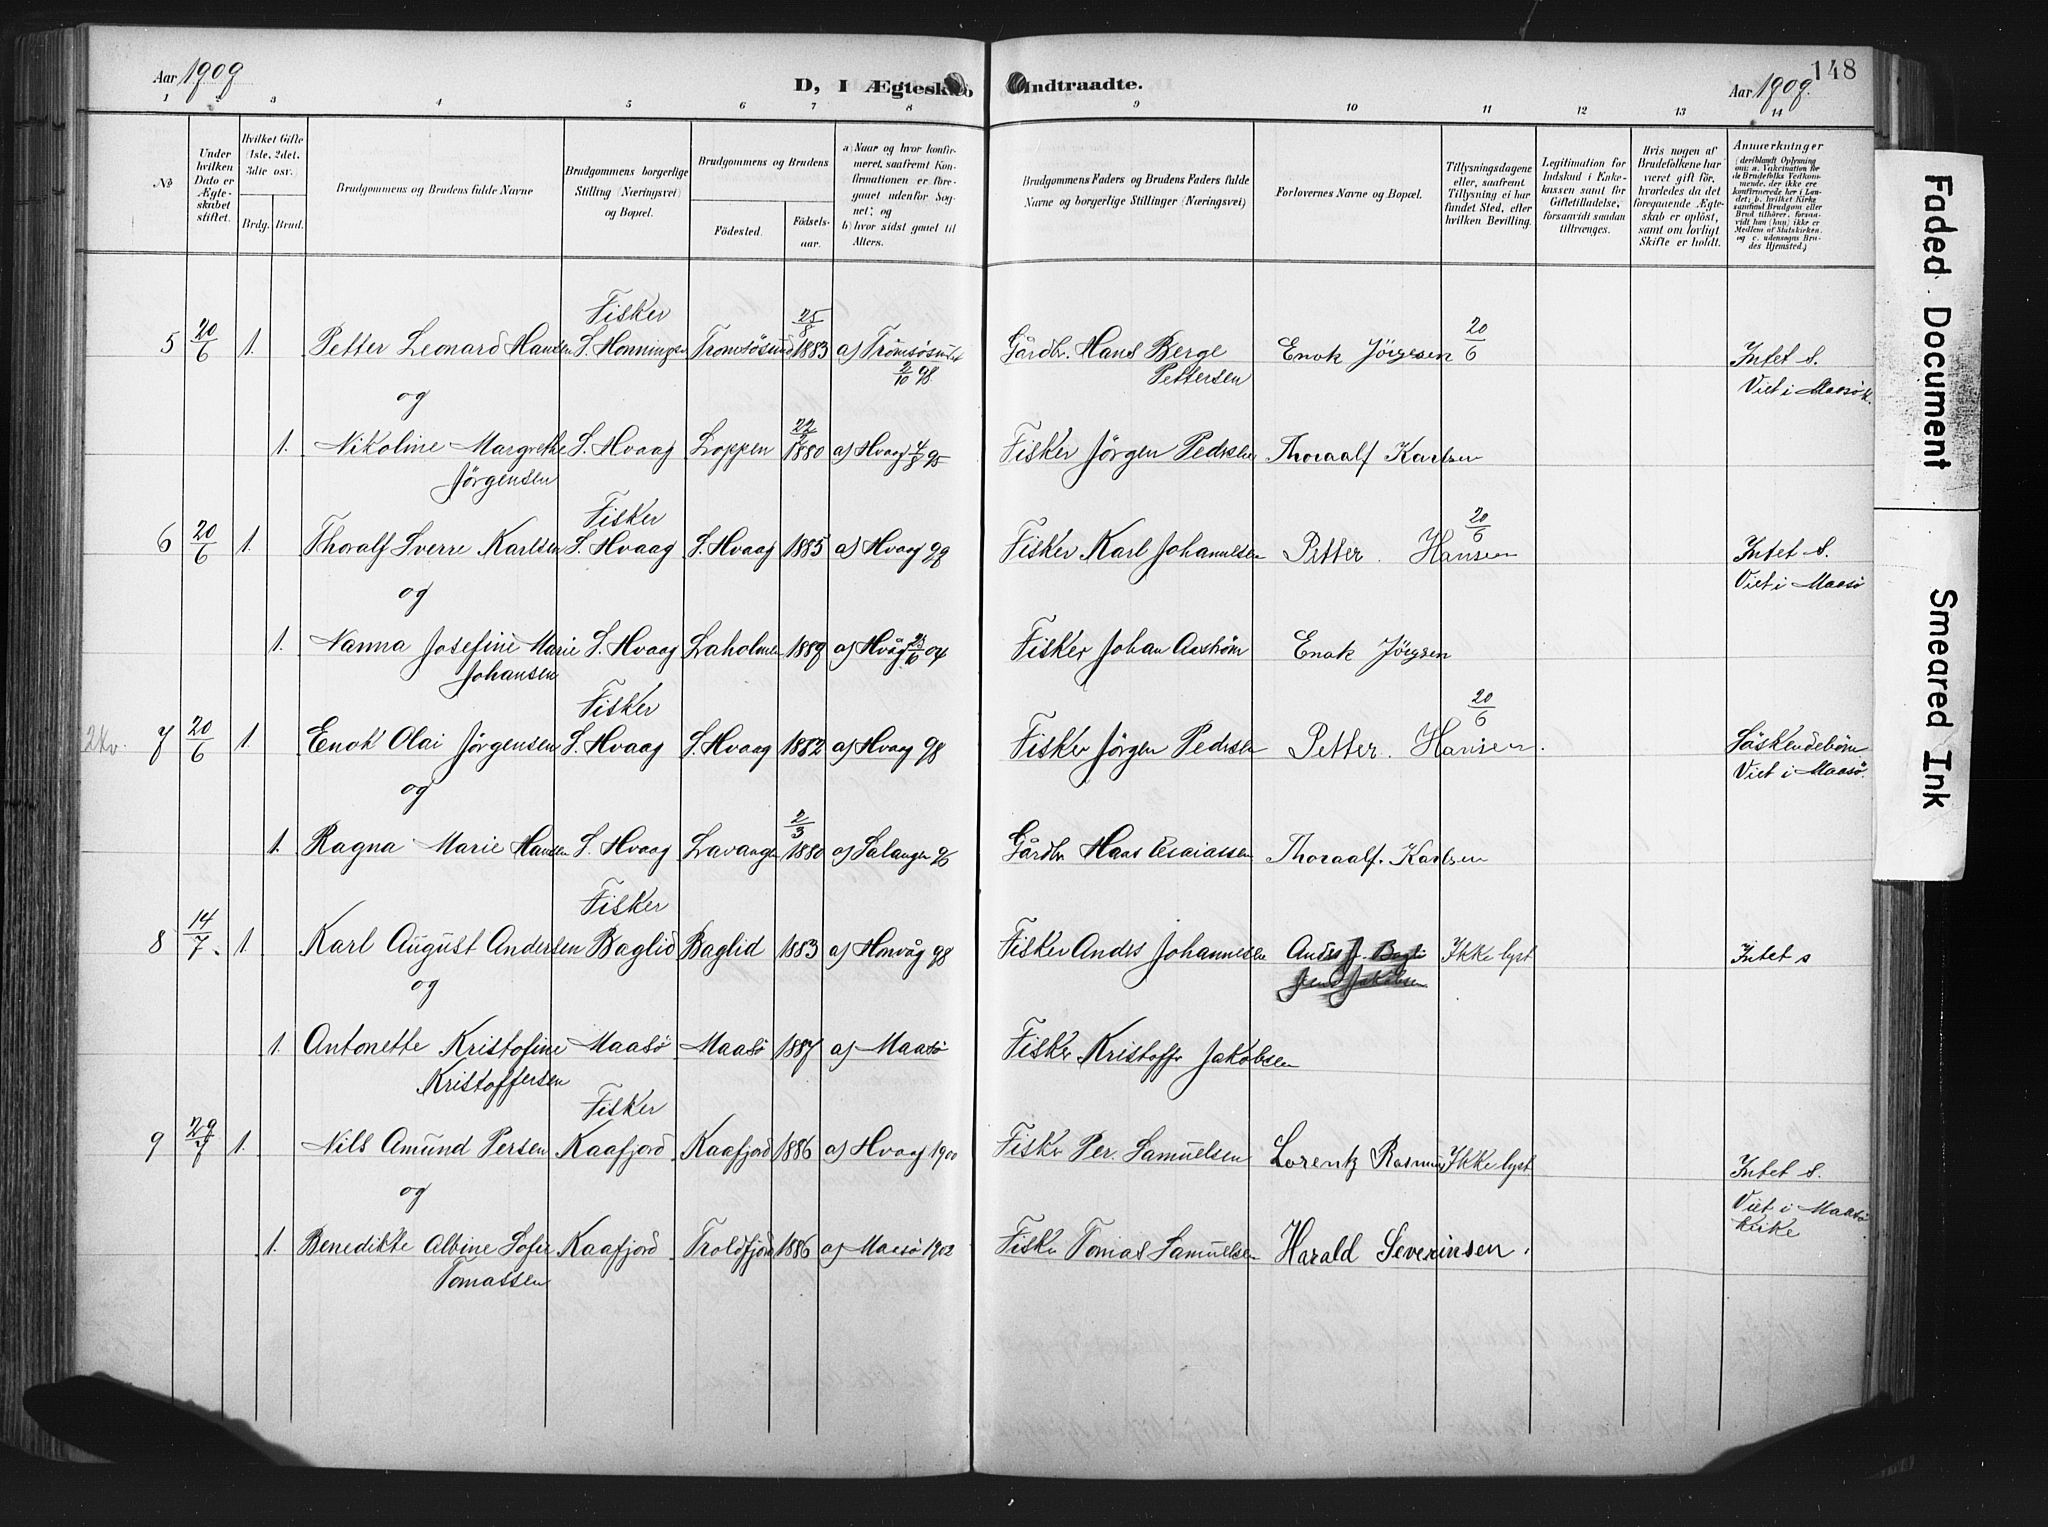 148
Aar 1909
D, I Ægteskab Indtraadte.
Aar 1909.
1 2 3 4 5 6 7 8 9 10 11 12 13 14
№
Under hvilken Dato er Ægteskabet stiftet.
Hvilket Gifte (1ste, 2det, 3die osv.
Brdg. Brud.
Brudgommens og Brudens fulde Navne
Brudgommens borgerlige Stilling (Næringsvei) og Bopæl.
Brudgommens og Brudens
Fødested.
Fødselsaar.
a) Naar og hvor konfirmeret, saafremt Konfirmationen er foregaaet udenfor Sognet; og
b) hvor sidst gaaet til Alters.
Brudgommens Faders og Brudens Faders fulde Navne og borgerlige Stillinger (Næringsvei)
Forlovernes Navne og Bopæl.
Tillysningsdagene eller, saafremt Tillysning ei har fundet Sted, efter hvilken Bevilling.
Legitimation for Indskud i Enkekassen samt for Giftetilladelse, forsaavidt saadan tiltrænges.
Hvis nogen af Brudefolkene har været gift før, hvorledes da det foregaaende Ægteskab er opløst, samt om lovligt Skifte er holdt.
Anmærkninger
(deriblandt Oplysning om: a. Vaccination for de Brudefolks Vedkommende, der ikke ere konfirmerede her i Landet; b. hvilket Kirkesamfund Brudgom eller Brud tilhører, forsaavidt han (hun) ikke er Medlem af Statskirken, og c. udensogns Brudes Hjemsted.)
5 20/6 1. Petter Leonard Hansen Fisker S. Honningsv Tromsösund 25/8 1883 a) Tromsösundet 2/10 98 Gårdbr. Hans Berge Pettersen Enok Jörgesen 20/6 Intet s. Viet i Maasö k.
og
1. Nikoline Margrethe Jörgensen S. Hvaag Loppen 1880 a) Hvaag 4/8 95 Fisker Jörgen Pedersen Thoraalf Karlsen
6 20/6 1. Thoralf Sverre Karlsen Fisker S. Hvaag S. Hvaag 1885 a) Hvaag 99 Fisker Karl Johannesen Petter Hansen 20/6 Intet s. Viet i Maasö
og
1. Nanna Josefine Marie Johansen S. Hvaag Laholmen 1889 a) Hvåg 04 Fisker Johan Aaström Enok Jörgsen
2kv. 7 20/6 1. Enok Olai Jörgensen Fisker S. Hvaag S. Hvaag 1882 a) Hvaag 98 Fisker Jörgen Pedersen Petter Hansen. 20/6 Söskendebörn Viet i Maasö.
og
1. Ragna Marie Hansen S. Hvaag Lavangen 2/3 1880 a) Salangen 95 Gårdbr Hans Esaiassen Thoraalf Karlsen
8 14/7 1. Karl August Andersen Fisker Baglid Baglid 1883 a) Honvåg 98 Fisker Anders Johannesen Anders J. Bagli Jens Jakobsen Ikke lyst Intet s
og
1. Antonette Kristofine Kristoffersen Maasö Maasö 1887 a) Maasö Fisker Kristoffer Jakobsen
9 29/7 1. Nils Amund Persen Fisker Kaafjord Kaafjord 1886 a) Hvaag 1900 Fisker Per. Samuelsen Lorentz Rasmus Ikke lyst Intet s. Viet i Maasö Kirke
og
1. Benedikte Albine Sofie Tomassen Kaafjord Troldfjord 1886 a) Maasö 1902 Fisker Tomas Samuelsen Harald Severinsen.
Faded Document
Smeared Ink